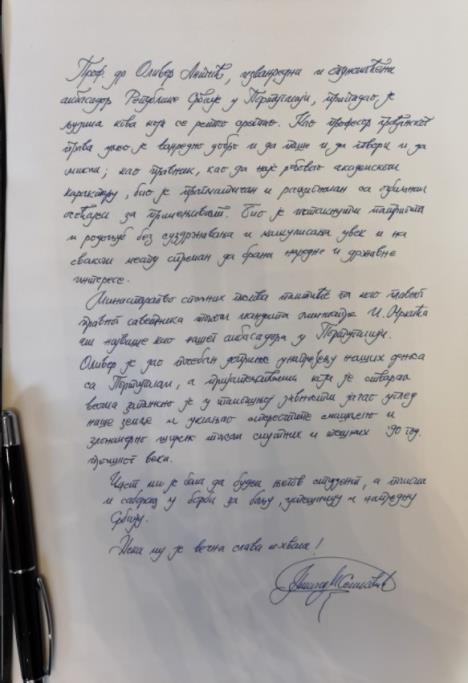 Проф. др Оливер Антић, изванредни и опуномоћени
амбасадор Републике Србије у Португалији, припадао је
људима кова који се ретко срећу. Као професор грађанског
права умео је ванредно добро и да пише и да говори и да
мисли; као правник, као да није робовао академском
карактеру, био је прагматичан и рационалан са
осећајем за Био је истакнути патриота
и родољуб без суздржавања и калкулисања увек и на
сваком месту спреман да брани народне и државне
интересе.
Министарство спољних послова памтиће га као
правног саветника током мандата министра И. Мркића
и највише као нашег амбасадора у Португалији.
Оливер је дао посебан допринос унапређењу наших односа
са Португалом, а пријатељствима која је стварао
веома је у тамошњој јавности јачао углед
наше земље и уклањао смишљено и
злонамерно ширене током смутних и 90-тих год.
прошлог века.
Част ми је била да будем његов студент, а
и сабрац у борби за бољу, и напредну
Србију.
Нека му је вечна слава и хвала!